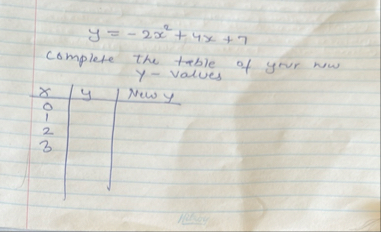 y = -2x² + 4x + 7
Complete the table of your new
y - values
x y New y
0
1
2
3